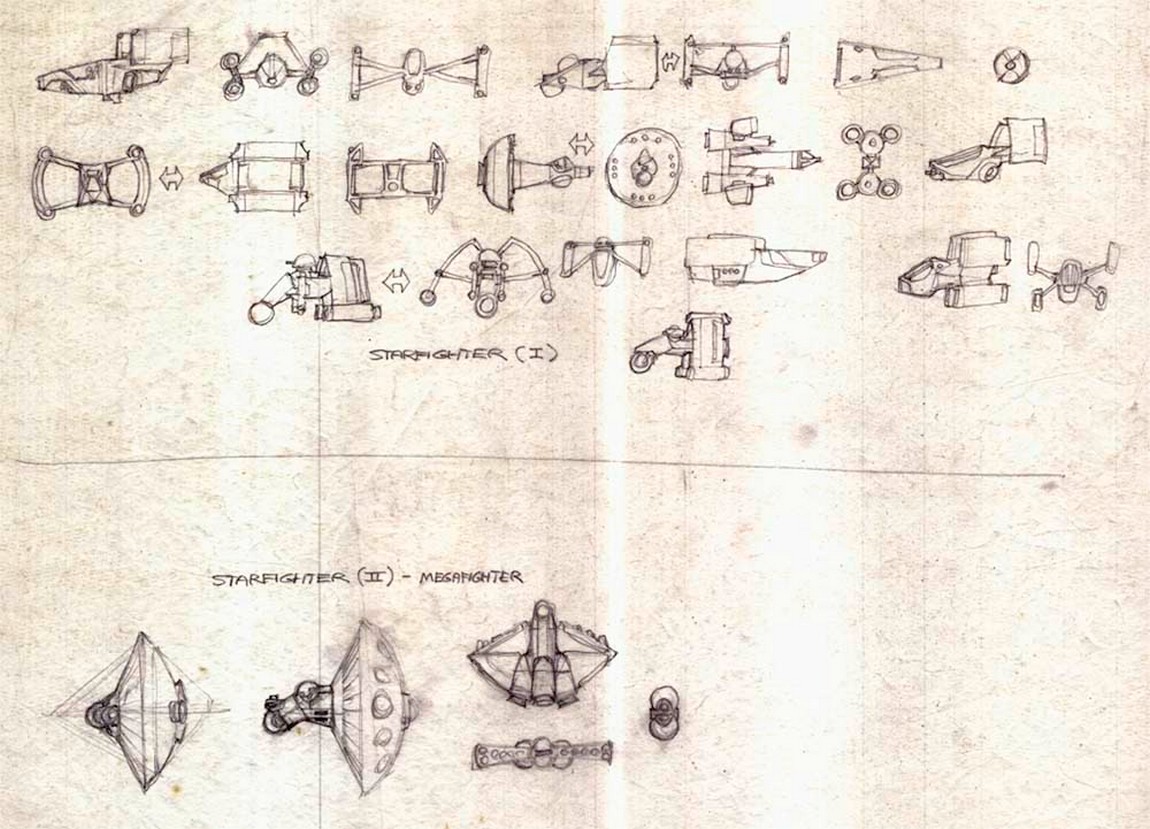 STARFIGHTER (I)
STARFIGHTER (II) - MEGAFIGHTER